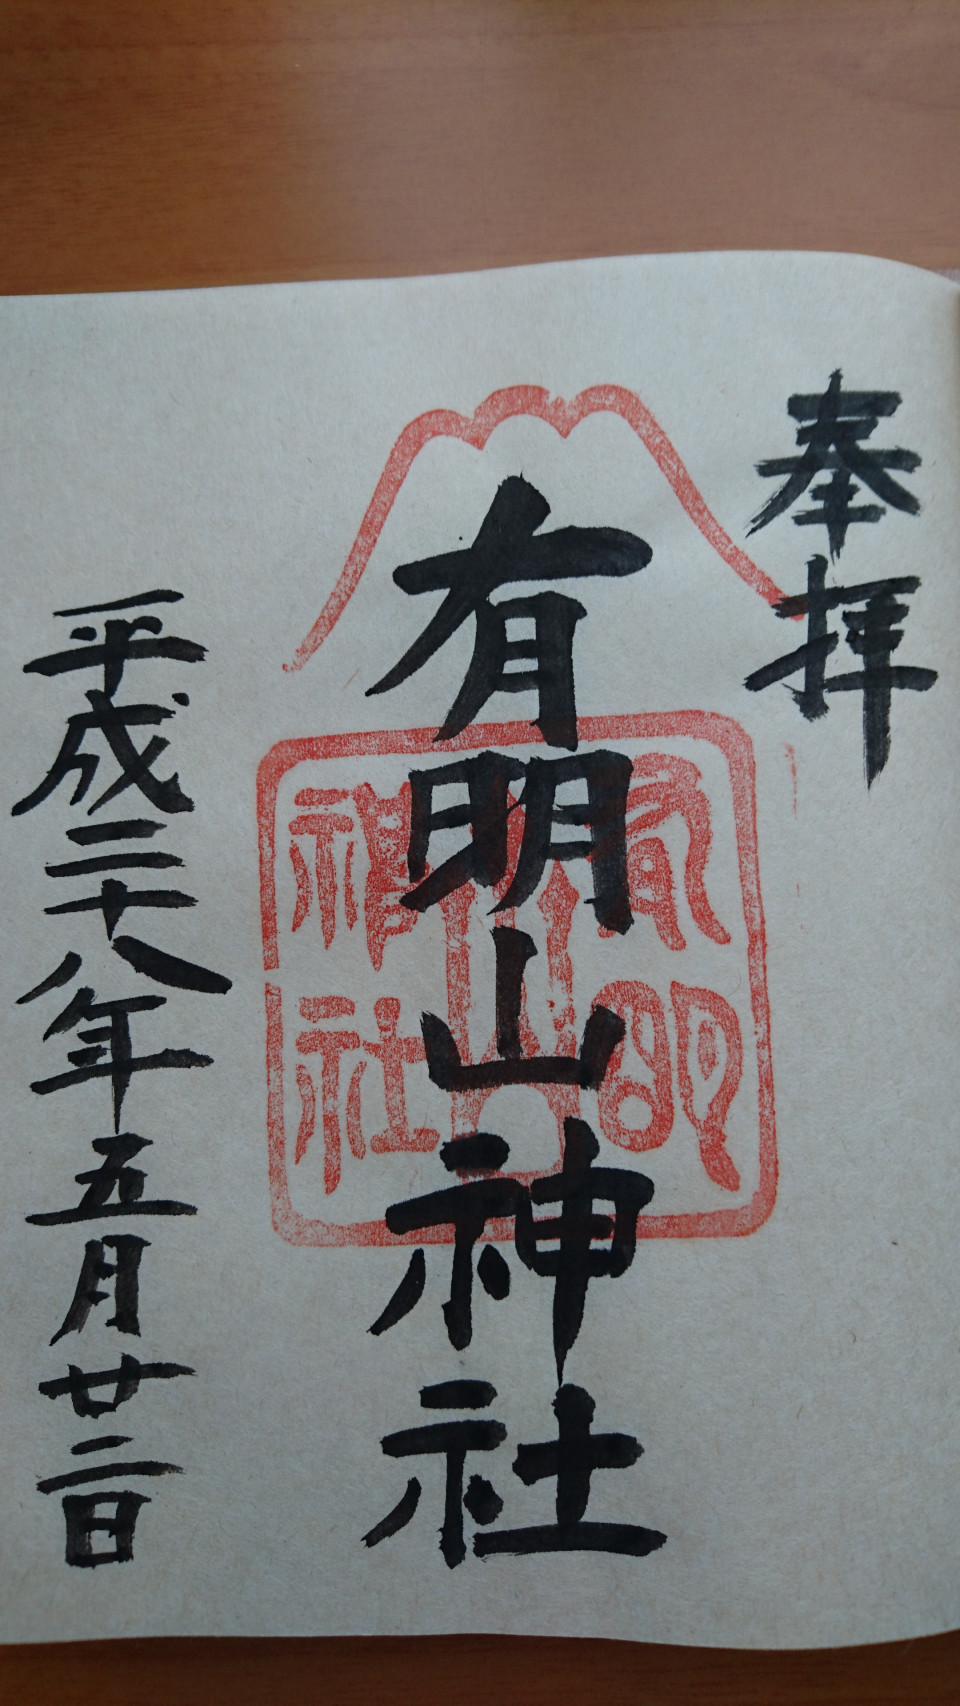 奉拝
有明山神社
有明山神社
平成二十八年五月廿二日